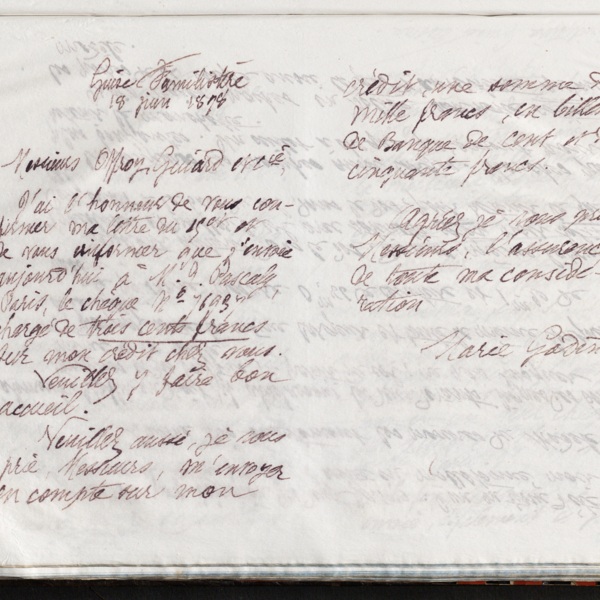 Guise Familistère
18 juin 1878
Messieurs Offroy, Guiard et Cie,
J'ai l'honneur de vous con-
firmer ma lettre du 15 ct et
de vous informer que j'envoie
aujourd'hui à Mr. J. Pascaly,
Paris, le chèque No
chargé de trois cents francs
sur mon crédit chez vous.
Veuillez y faire bon
accueil.
Veuillez aussi, je vous
prie Messieurs, m'envoyer
en compte sur mon
crédit une somme d
mille francs, en bille
de Banque de cent et
cinquante francs.
Agréez je vous pri
Messieurs, l'assuranc
de toute ma considé-
ration
Marie Godin